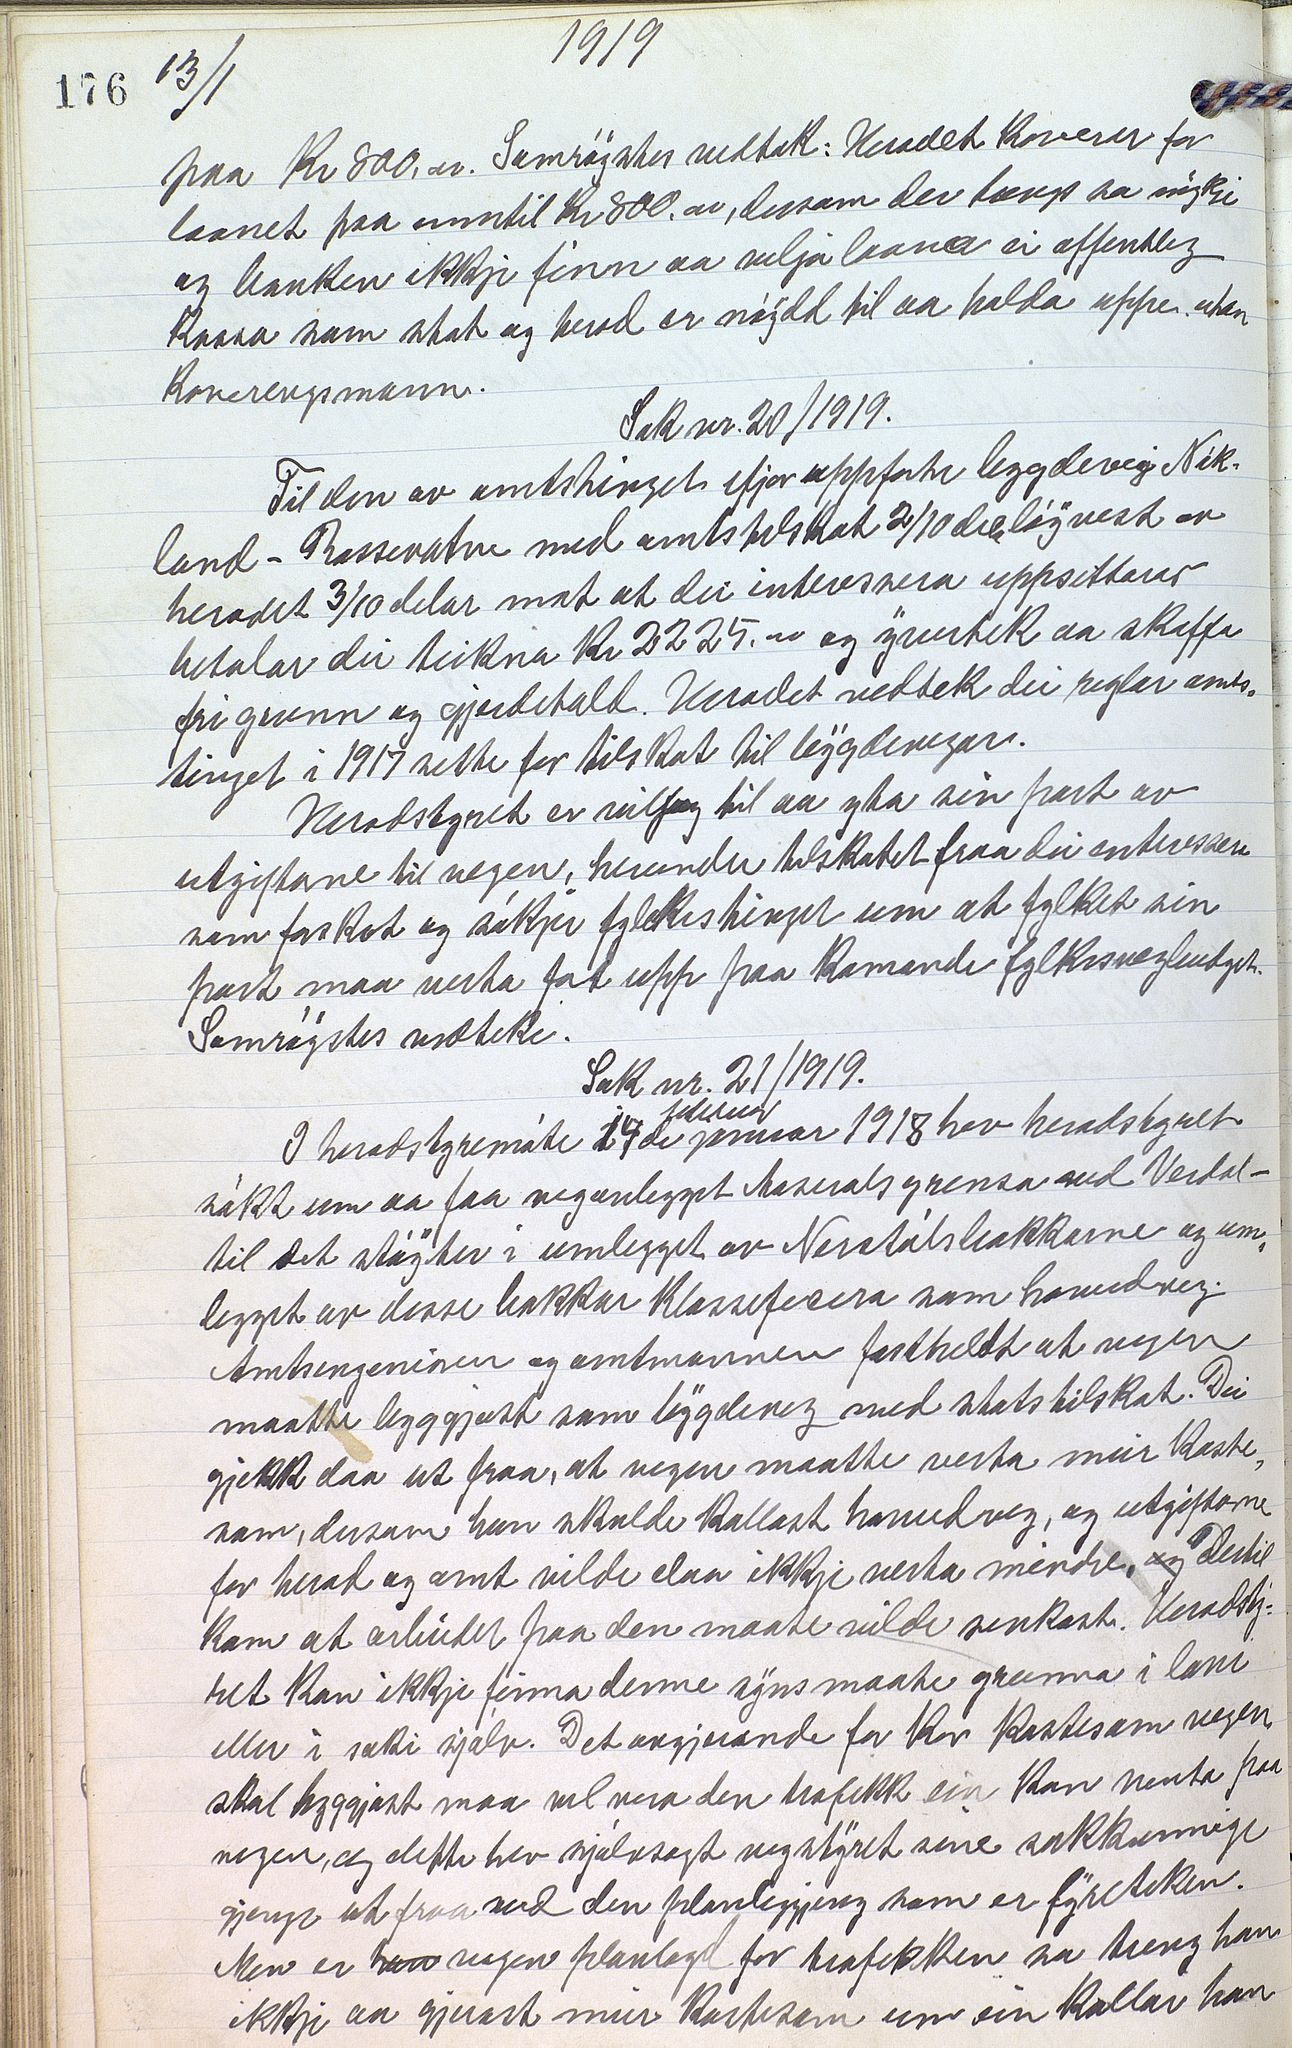 1919
176 13/1
paa Kr 800,oo. Samrøystes vedtak: Heradet Koverer for
laanet paa inntil Kr 800.oo, dersom der trengs so mykje
og banken ikkje finn aa vilja laana ei offentleg
Kassa som stat og herad er nøydd til aa halda uppe utan
Koverengsmann.
Sak nr. 20/1919.
Til den av amtstinget ifjor uppførte bygdeveg
land - Rossevatne med amtstilskot 2/10 delar løyvest av
heradet 3/10 delar mot at dei interesera uppsittarar
betalar dei teikna Kr 2225.oo og yvertek aa skaffa
fri grunn og gjerdehald. Heradet vedtek dei reglar amts-
tinget i 1917 sette for tilskot til bygdevegar.
Heradstyret er viljug til aa yta sin part av
utgiftorne til vegen, herunder tilskotet fraa dei interesera
som forskot og søkjer fylkestinget um at fylket sin
part maa verta ført upp paa Komande fylkesvegbudget.
Samrøystes vedteke.
Sak nr. 21/1919.
februar
I heradstyremøte 14 de januar 1918 hev heradstyret
søkt um aa faa veganlegget Aaseralsgrensa ved Verdal -
til det støyter i umlegget av bakkarne og um-
legget av desse bakkar Klassefisera som hovudveg.
Amtsingeniøren og amtmannen fastheldt at vegen
maatte byggjast som bygdeveg med statstilskot. Dei
gjekk daa ut fraa, at vegen maatte verta meir Koste-
sam, dersom han skulde Kallast hovudveg, og utgiftorne
for herad og amt vilde daa ikkje verta mindre, og Dertil
Kom at arbeidet paa den maate vilde senkast. Heradsty-
ret Kan ikkje finna denne synsmaate grunna i lovi
eller i saki sjølv. Det avgjerande for Kor Kostesam vegen
skal byggjast maa vel vera den trafikk ein Kan venta paa
vegen, og dette hev sjølvsagt vegstyret sine sakkunnige
gjenge ut fraa ved den planleggjing som er fyreteken.
Men er han vegen planlagd for trafikken so treng han
ikkje aa gjerast meir Kostesam um ein Kallar han